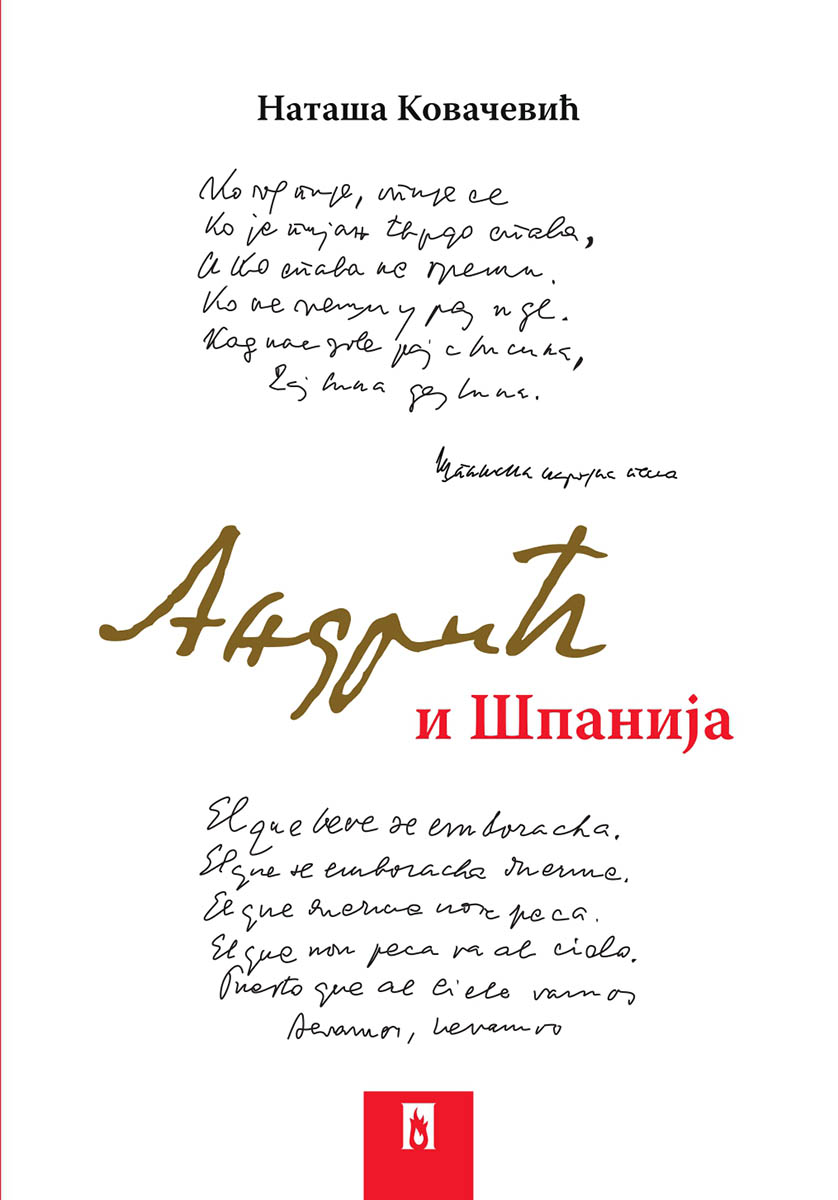 Наташа Ковачевић
Ко пије, опије се
Ко је пијан тврдо спава,
А ко спава не греши.
Ко не греши у рај иде.
Кад нас зове рај с висина,
Дај вина дај вина.
Шпанска народна песма
Андрић
и Шпанија
El que beve se emboracha.
El que se emboracha duerme.
El que duerme non peca.
El que non peca va al cielo.
Puesto que al cielo vamos
Bevamos, bevamos